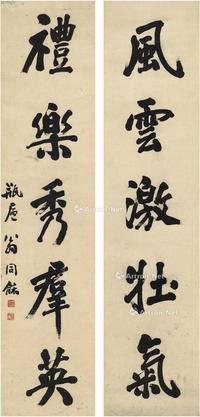 風雲激壯氣
禮樂秀羣英
瓶廬 翁同龢